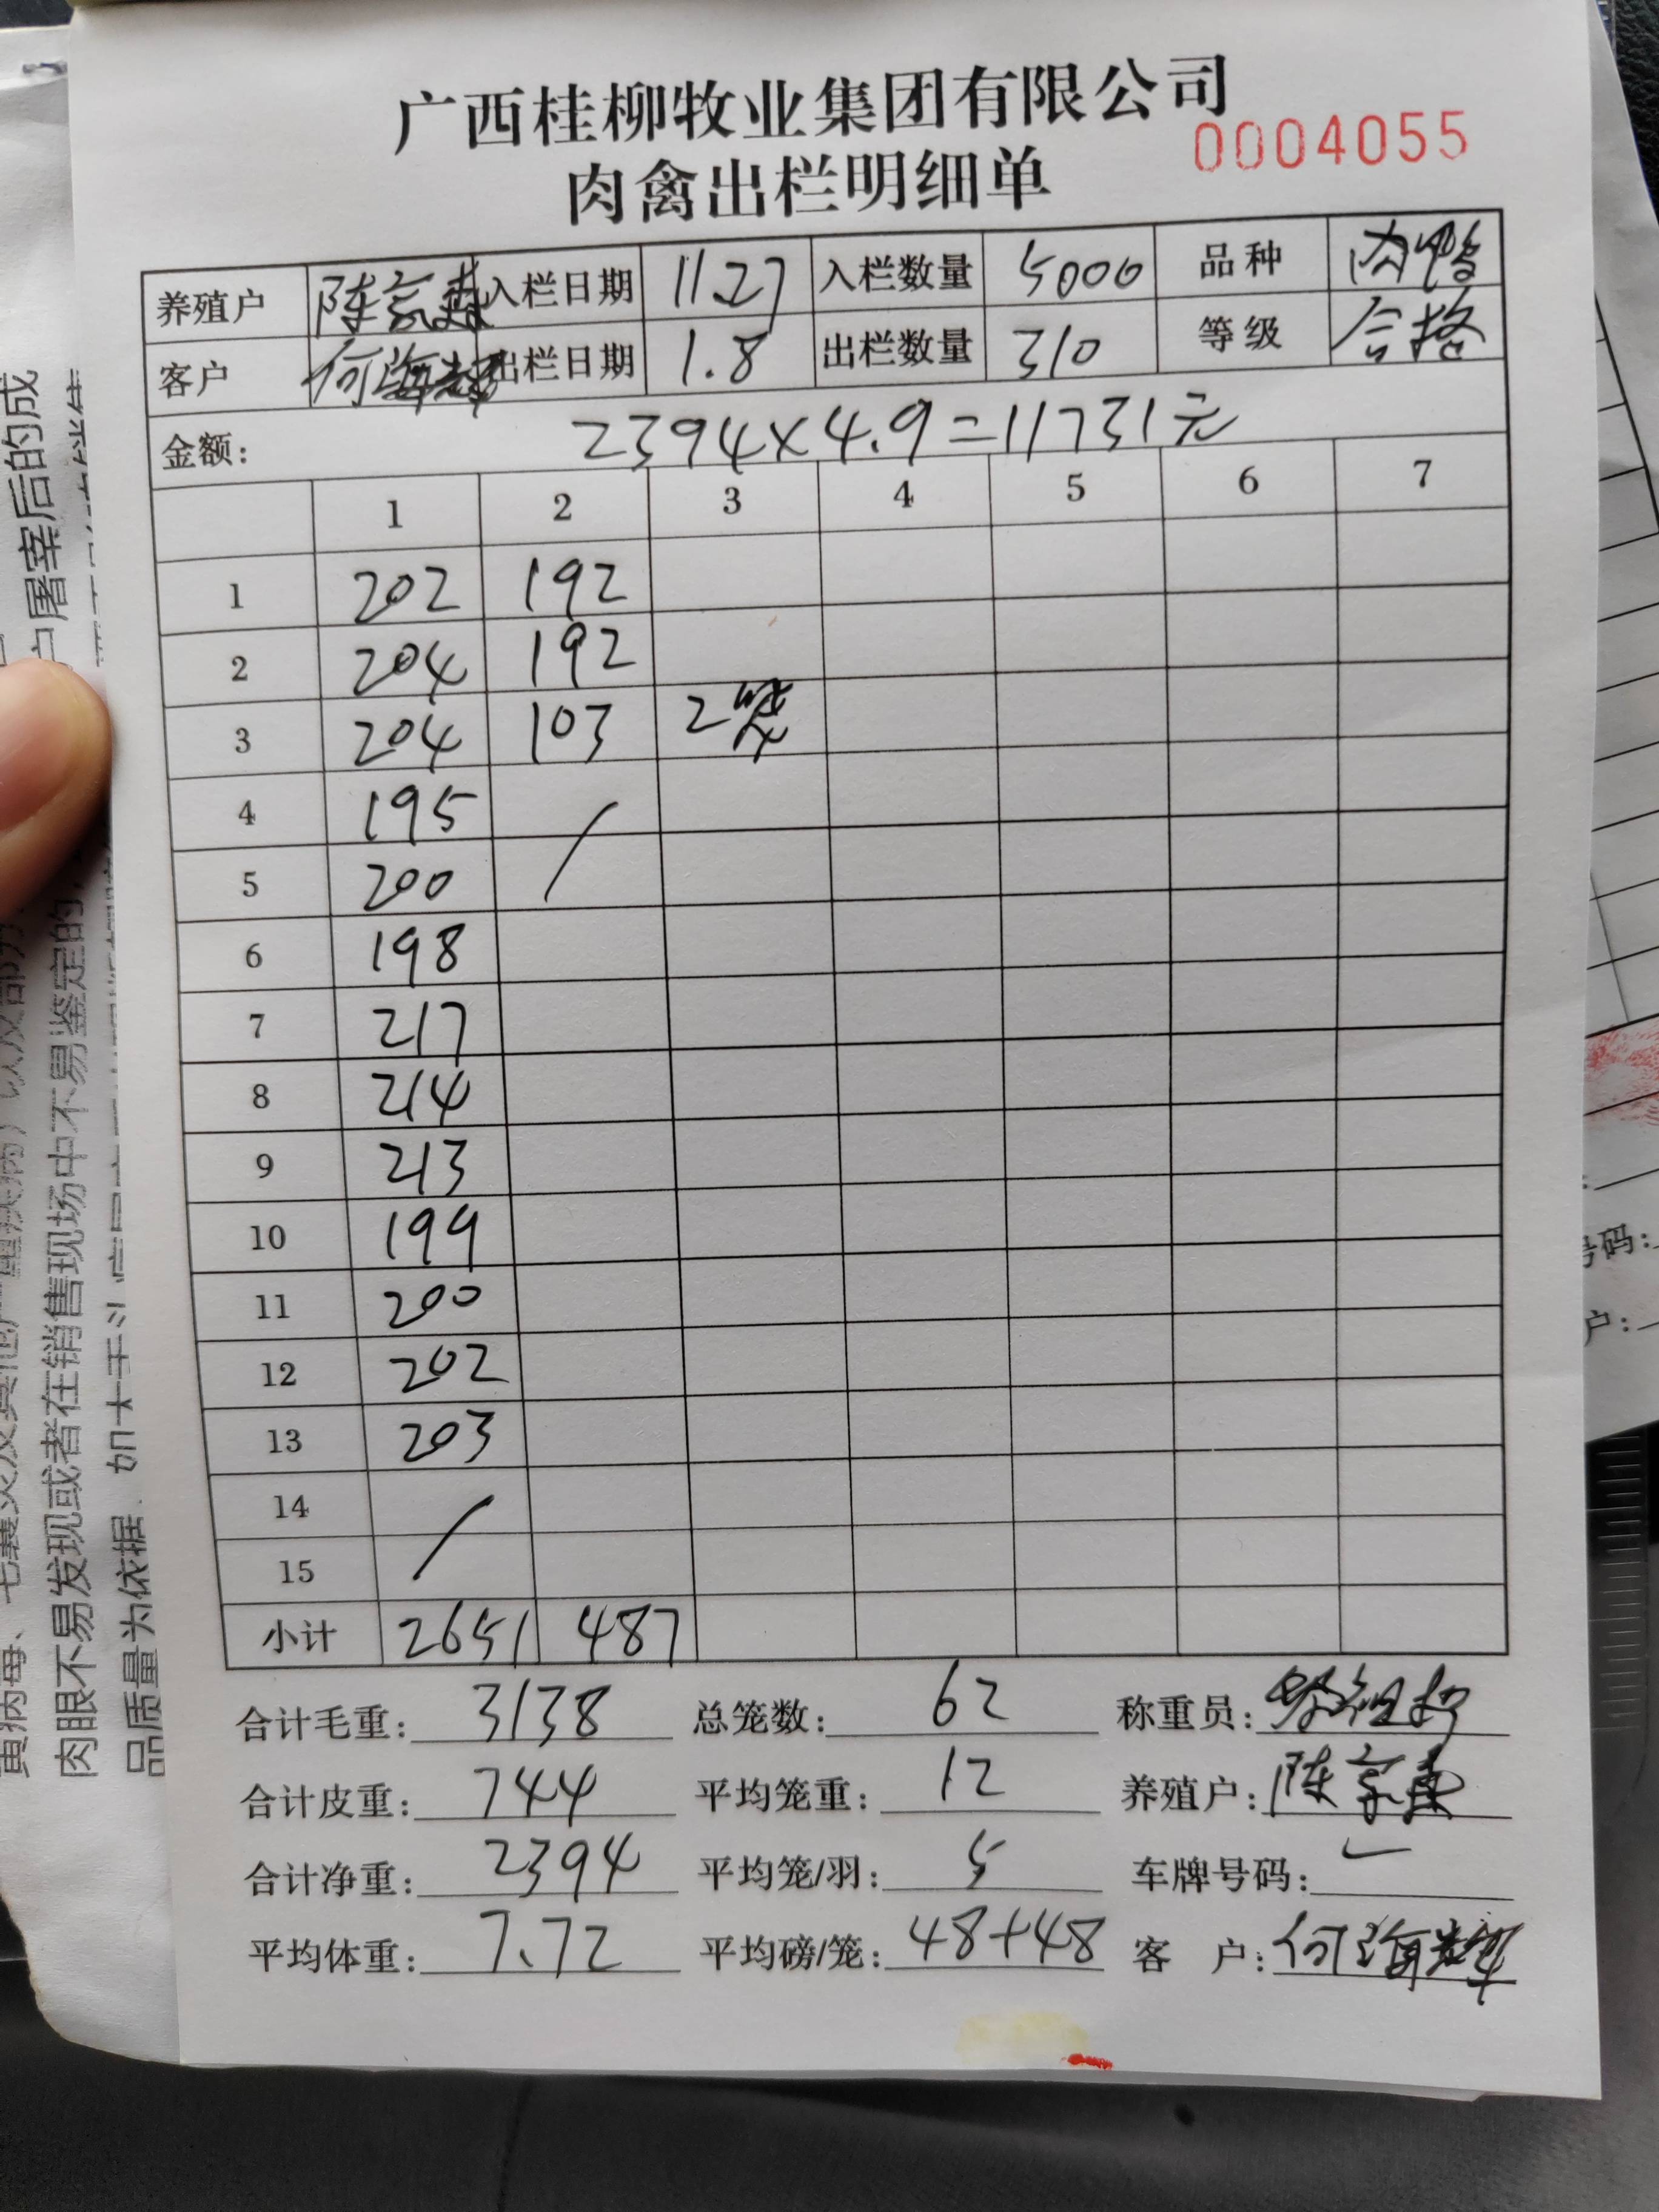 广西桂柳牧业集团有限公司
0004055
肉禽出栏明细单
养殖户 陈 入栏日期 11.27 入栏数量 5000 品种 肉鸭
客户 何海 出栏日期 1.8 出栏数量 310 等级 合格
金额: 2394×4.9=11731元
1 2 3 4 5 6 7
1 202 192
2 204 192
3 204 103 2笼
4 195 /
5 200
6 198
7 217
8 214
9 213
10 199
11 200
12 202
13 203
14 /
15
小计 2651 487
合计毛重: 3138 总笼数: 62 称重员:
合计皮重: 744 平均笼重: 12 养殖户: 陈
合计净重: 2394 平均笼/羽: 5 车牌号码:
平均体重: 7.72 平均磅/笼: 48+48 客 户: 何海
户屠宰后的成
肉眼不易发现或者在销售现场中不易鉴定的,
品质量为依据.
号码:
户: